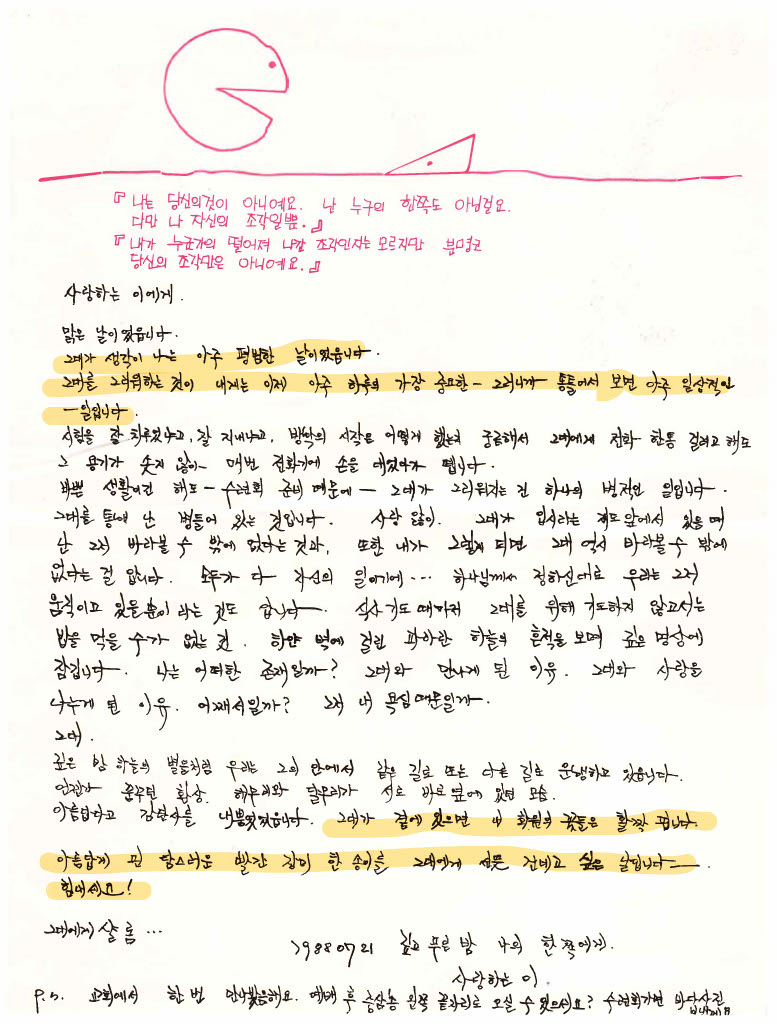 『나는 당신의것이 아니예요. 난 누구의 한쪽도 아닌걸요.
다만 나 자신의 조각일뿐.』
『내가 누군가의 떨어져 나간 조각인지는 모르지만 분명코
당신의 조각만은 아니예요.』
사랑하는 이에게.
맑은 날이었읍니다.
그대가 생각이 나는 아주 평범한 날이었읍니다.
그대를 그리워하는 것이 내게는 이제 아주 하루의 가장 중요한 - 그러니까 통틀어서 보면 아주 일상적인
-일입니다.
시험을 잘 치루었다고, 잘 지내냐고, 방학의 시작은 어떻게 했는지 궁금해서 그대에게 전화 한통 걸려고 해도
그 용기가 솟지 않아 매번 전화기에 손을 대었다가 뗍니다.
바쁜 생활이건 해도 - 수련회 준비 때문에 - 그대가 그리워지는 건 하나의 병적인 일입니다.
그대를 통해 난 병들어 있는 것입니다. 사랑 앓이. 그대가 입시라는 제도 앞에서 있을 때
난 그저 바라볼 수 밖에 없다는 것과, 또한 내가 그렇게 되면 그대 역시 바라볼 수 밖에
없다는 걸 압니다. 모두가 다 자신의 일이기에... 하나님께서 정하신대로 우리는 그저
움직이고 있을 뿐이라는 것도 압니다. 식사기도 때마저 그대를 위해 기도하지 않고서는
밥을 먹을 수가 없는 건. 하얀 벽에 걸린 파아란 하늘의 흔적을 보며 깊은 명상에
잠깁니다. 나는 어떠한 존재일까? 그대와 만나게 된 이유. 그대와 사랑을
나누게 된 이유. 어째서일까? 그저 내 욕심 때문일까.
그대.
깊은 밤 하늘의 별들처럼 우리는 그의 안에서 같은 길로 또는 다른 길로 운행하고 있읍니다.
언젠가 꿈꾸던 환상. 해무리와 달무리가 서로 바로 옆에 있던 모습.
아름답다고 감탄사를 내뿜었읍니다. 그대가 곁에 있으면 내 화원의 꽃들은 활짝 핍니다.
아름답게 핀 탐스러운 빨간 장미 한 송이를 그대에게 선뜻 건네고 싶은 날입니다.
힘내세요!
그대에게 샬롬...
19880721 깊고 푸른 밤 나의 한쪽에게.
사랑하는 이.
P.S. 교회에서 한 번 만나봤음해요. 예배 후 왼쪽 끝자리로 오실 수 있으세요? 수련회가면 바닷사진